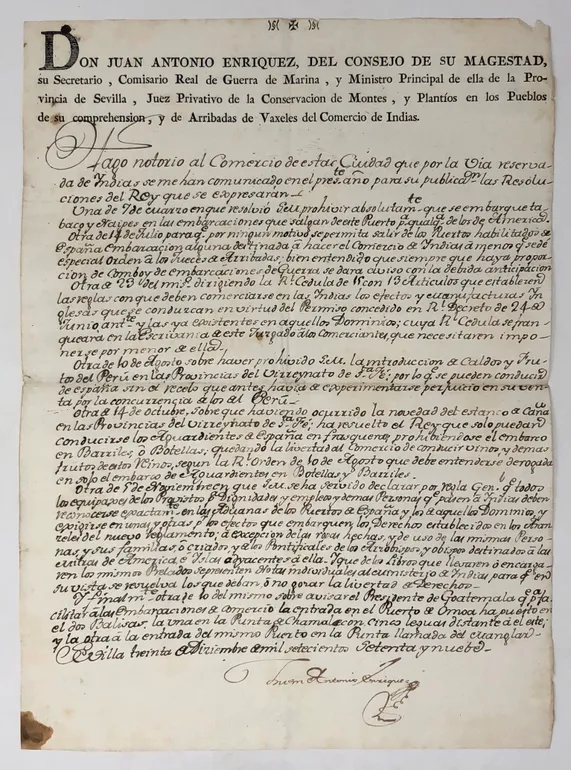 DON JUAN ANTONIO ENRIQUEZ, DEL CONSEJO DE SU MAGESTAD,
su Secretario , Comisario Real de Guerra de Marina , y Ministro Principal de ella de la Pro-
vincia de Sevilla , Juez Privativo de la Conservacion de Montes , y Plantíos en los Pueblos
de su comprehension, y de Arribadas de Vaxeles del Comercio de Indias.
Hago notorio al Comercio de esta Ciudad que por la Via reserva-
da de Indias se me han comunicado en el pres.te año para su publicac.n las Resolu-
ciones del Rey que se expresarán
Una de 7 de en que resolvió S.M. prohivir absolutam.te que se embarque ta-
baco y Naipes en las embarcaciones que salgan de este Puerto p.a qualq.a de los de America.
Otra de 14 de Julio para q.e por ningun motivo se permita salir de los Puertos habilitados de
España Embarcacion alguna destinada à hacer el Comercio de Indias à menos q.e se dé
especial Orden à los Jueces de Arribadas, bien entendido que siempre que haya propor-
cion de Comboy de embarcaciones de Guerra se dara aviso con la debida anticipacion
Otra de 23 del mis.o dirigiendo la R.l Cedula de con 13 Articulos que establecen
las reglas con que deben comerciarse en las Indias los efectos y manufacturas In-
glesas que se conduzcan en virtud del Permiso concedido en R.l Decreto de 24 de
Junio ant.te y las ya existentes en aquellos Dominios; cuya R.l Cedula se fran-
queará en la Escrivania de este Juzgado à los Comerciantes, que necesitaren impo-
nerse por menor de ella.
Otra de 10 de Agosto sobre haver prohivido S.M. la introduccion de Caldos y Fru-
tos del Perú en las Provincias del Virreynato de S.ta Fé; por lo q.e se pueden conducir
de españa sin el recelo que antes havia de experimentarse perjuicio en su ven-
ta por la concurrencia de los del Perú
Otra de 14 de octubre, Sobre que haviendo ocurrido la novedad del estanco de Caña
en las Provincias del virreynato de S.ta Fé; ha resuelto el Rey que solo puedan
conducirse los Aguardientes de España en frasqueras, prohibiendose el embarco
en Barriles, ò Botellas; quedando la libertad al Comercio de conducir vinos y demas
frutos de estos Reinos, segun la R.l Orden de 10 de Agosto que debe entenderse derogada
en solo el embarco de Aguardientes en Botellas y Barriles.
Otra de 5 de en que S.M. se ha servido declarar por regla Gen.l q.e todos
los equipages de los Provistos p.a Dignidades y empleos y demas Personas q.e pasen à Indias deben
reconocerse exactam.te en las Aduanas de los Puertos de España y los de aquellos Dominios, y
exigirse en unas y otras p.r los efectos que embarquen, los Derechos establecidos en los Aran-
celes del nuevo reglamento; à excepcion de las ropas hechas, y de uso de las mismas Perso-
nas, y sus familias, ò criados, y de los Pontificales de los Arzobispos y obispos destinados à las
Mitras de America è Islas adyacentes à ella. Y que de los Libros que llevaren ò encarga-
ren los mismos Prelados se presenten Notas individuales al ministerio de Indias, para q.e en
su vista se resuelva los que deban, ò no gozar la libertad de Derechos.
Y final.m.te otra de 10 del mismo sobre avisar el Presidente de Goatemala q.e p.a fa-
cilitar à las Embarcaciones de comercio la entrada en el Puerto de Omoa ha puesto en
el dos Balisas, la una en la Punta de Chamalecon cinco leguas distante de el este;
y la otra à la entrada del mismo Puerto en la Punta llamada del Manglar.
Sevilla treinta de Diciembre de mil setecientos Setenta y nueve.
Juan Antonio Enriquez